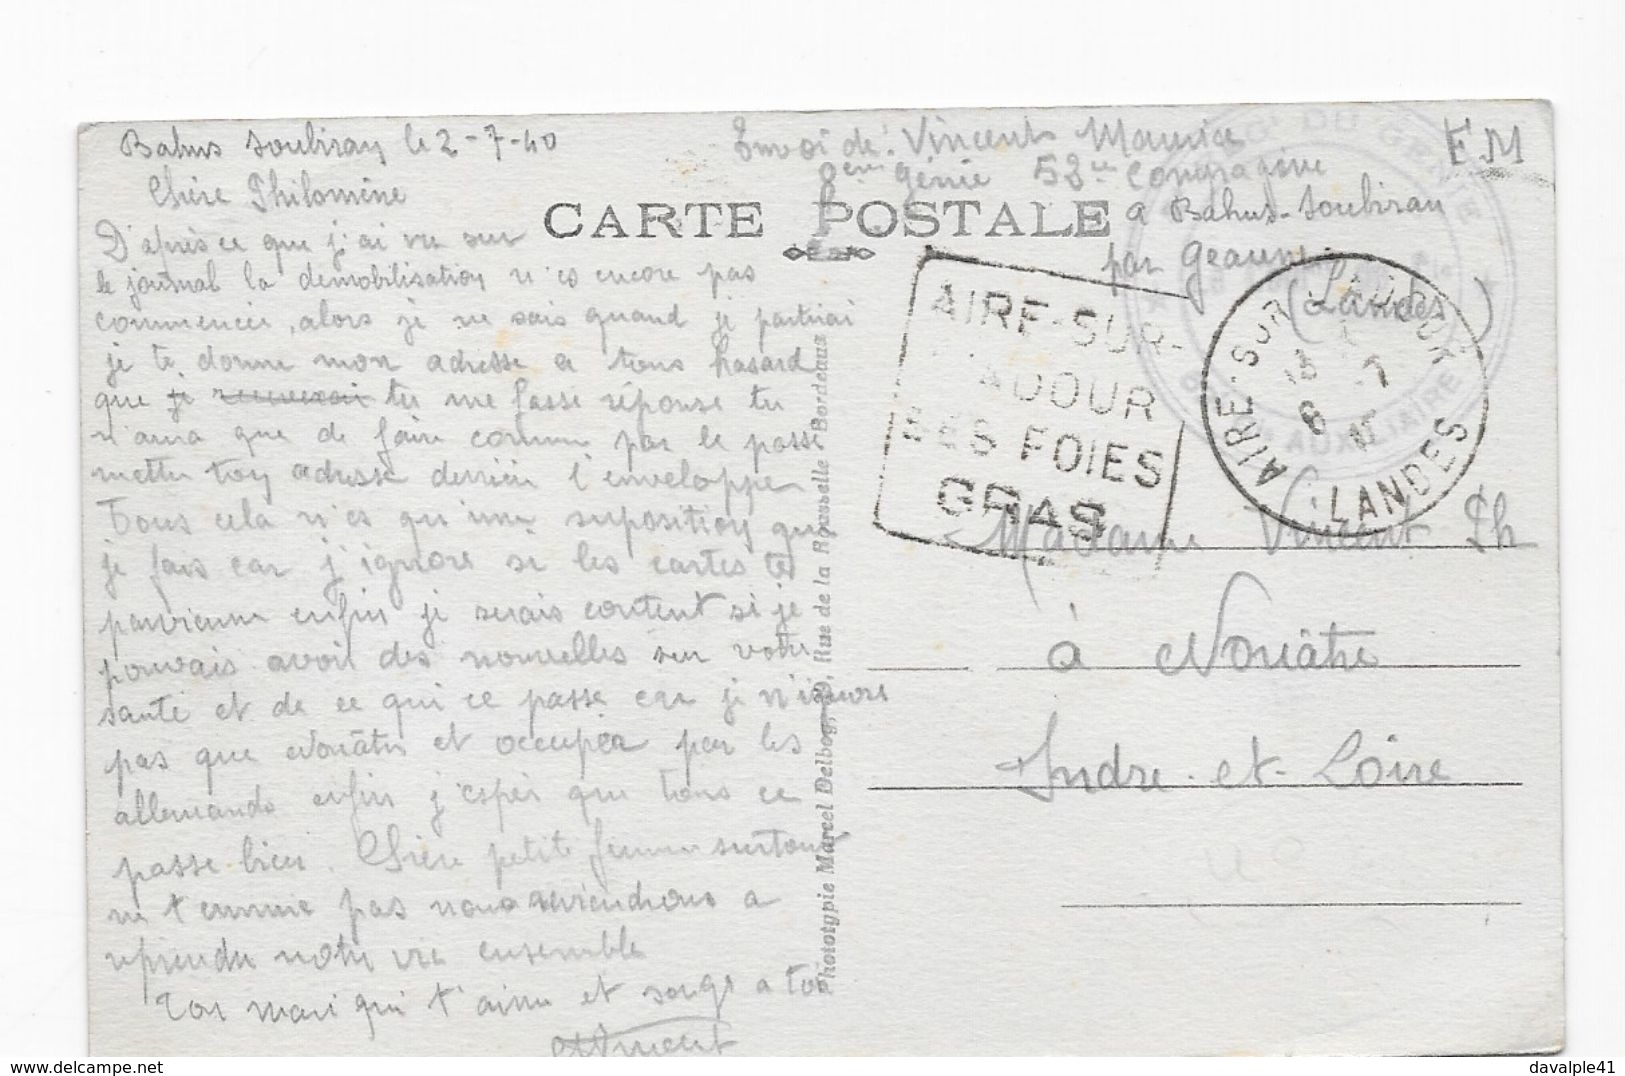 Bahus Soubiran le 2-7-40
Chère Philomène
D'après ce que j'ai vu sur
le journal la démobilisation n'es encore pas
commencer, alors je ne sais quand je partirai
je te donne mon adresse a tous hasard
que je recevrai tu me fasse réponse tu
n'aura que de faire comme par le passé
mettre ton adresse derrière l'enveloppe
Tous cela n'es qu'une suposition que
je fais car j'ignore si les cartes te
parvienne enfin je serais content si je
pouvais avoir des nouvelles sur votre
santé et de ce qui ce passe car je n'ignore
pas que Nouâtre et occuper par les
allemands enfin j'espère que tous ce
passe bien. Chère petite femme surtout
ne t'ennuie pas nous reviendrons a
reprendre notre vie ensemble
Ton mari qui t'aime et songe a toi
MVincent
Envoi de: Vincent Maurice
8ème Génie 53ème Compagnie
a Bahus-Soubiran
par Geaune
(Landes)
EM
CARTE POSTALE
AIRE-SUR-
ADOUR
SES FOIES
GRAS
AIRE-SUR-L'ADOUR
LANDES
REGt DU GENIE
AUXILIAIRE
Madame Vincent Ph
à Nouâtre
Indre-et-Loire
Phototypie Marcel Delboy, Rue de la Rousselle Bordeaux
delcampe.net
davalple41